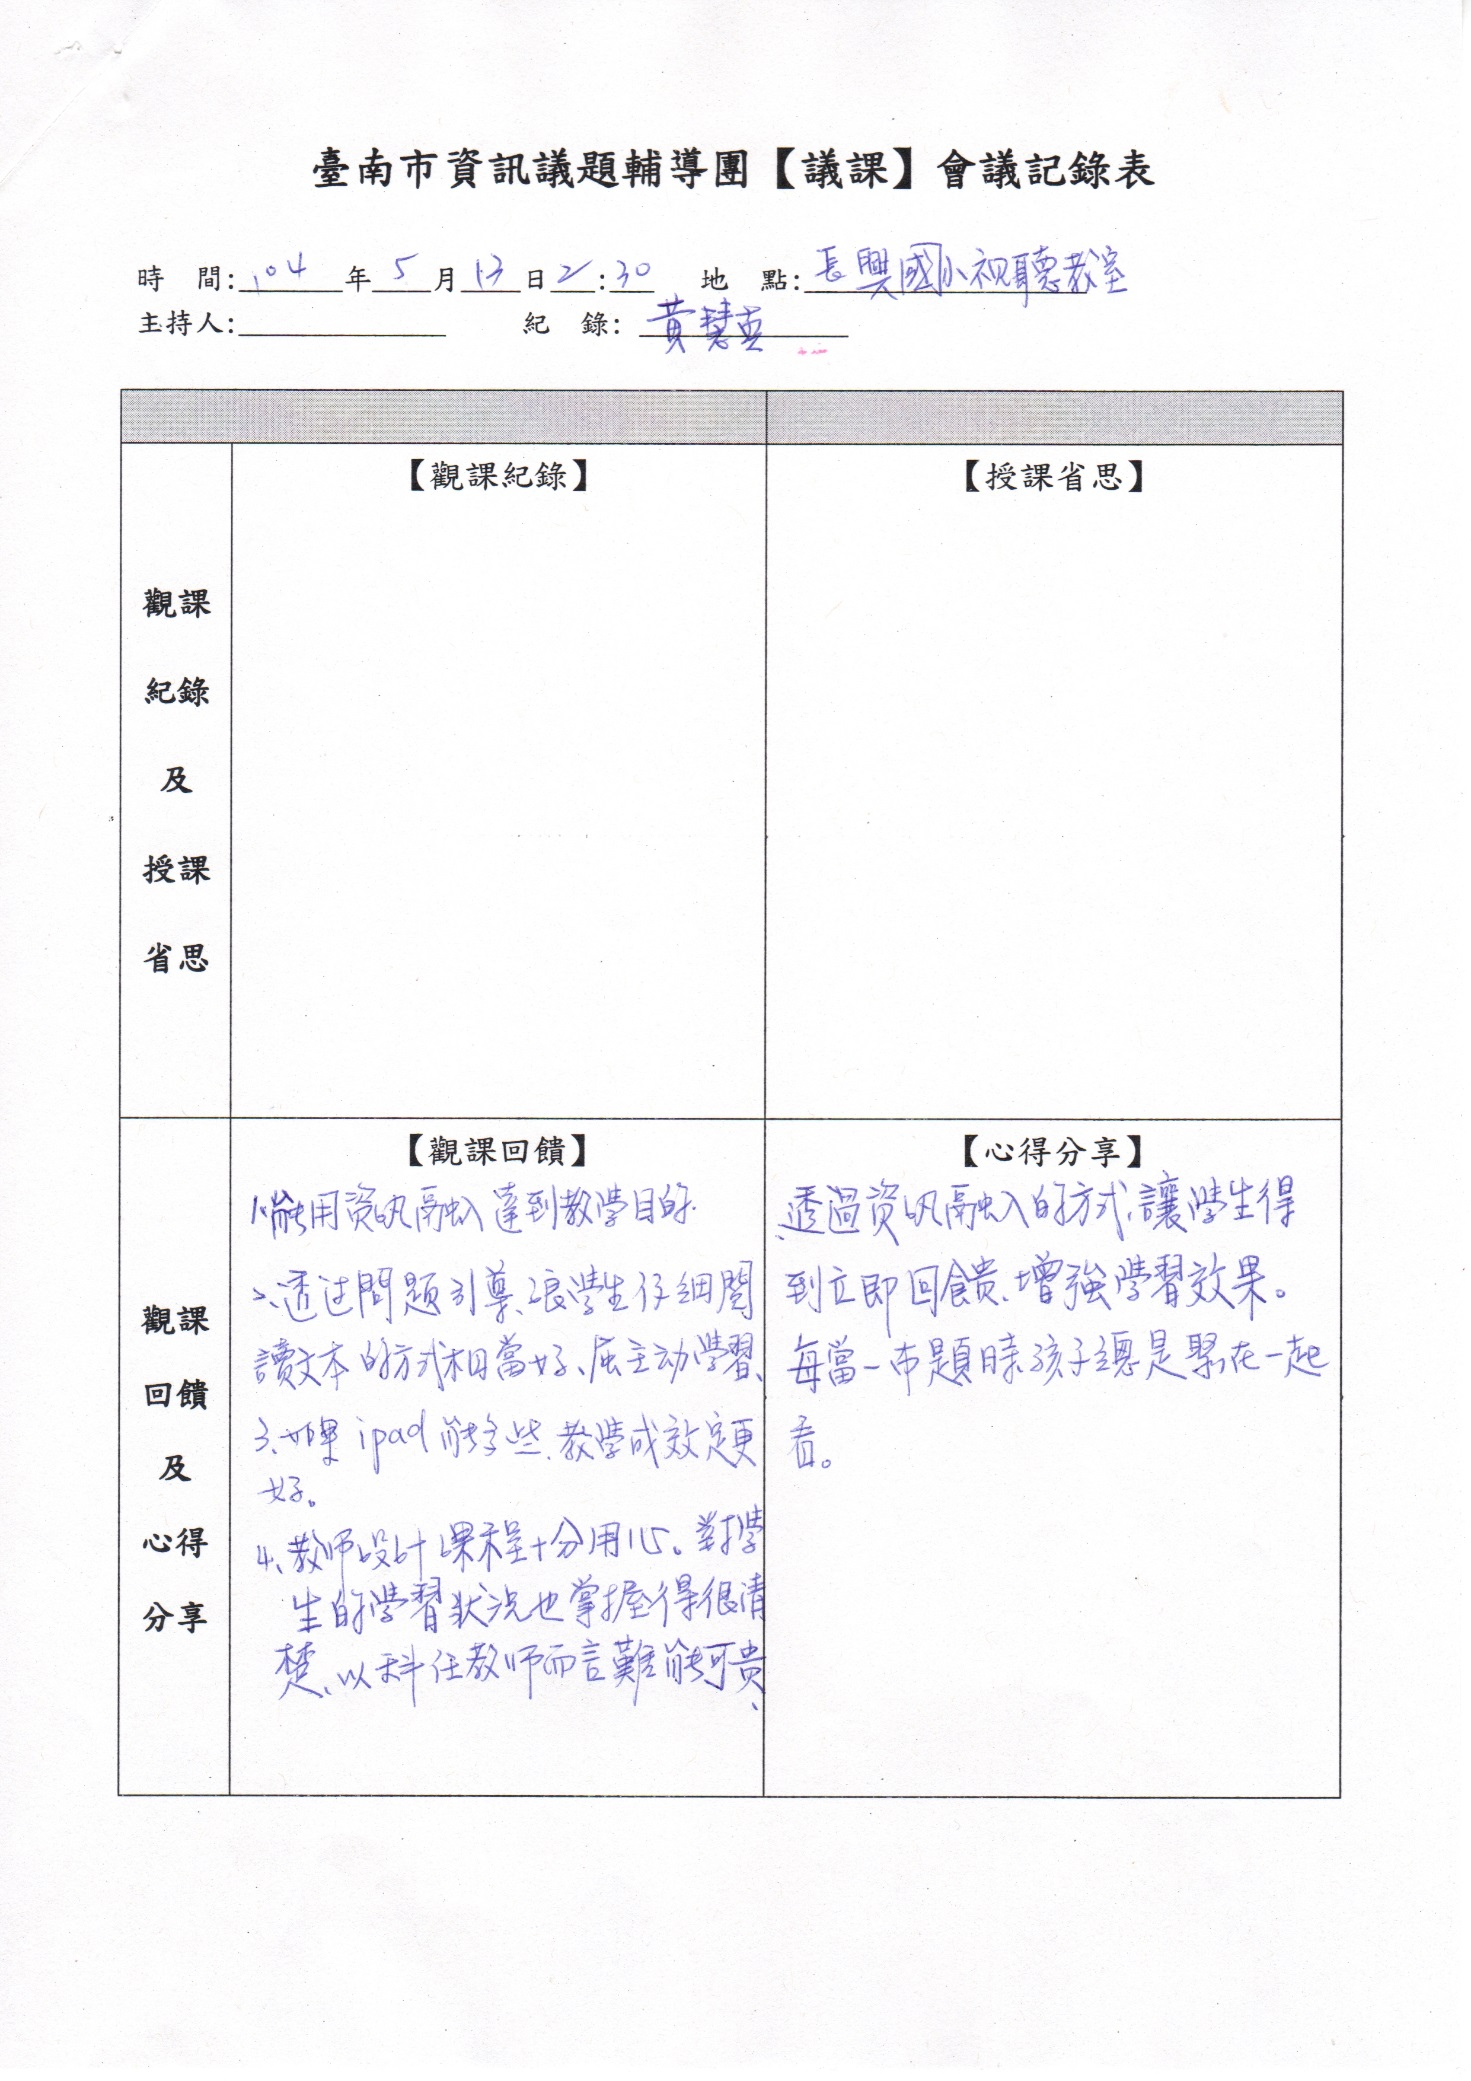 臺南市資訊議題輔導團【議課】會議記錄表
時 間:104年5月13日2:30 地 點:長興國小視聽教室
主持人: 紀 錄:黃慧英
【觀課紀錄】 【授課省思】
觀課
紀錄
及
授課
省思
【觀課回饋】
1.能用資訊融入達到教學目的.
2、透过問題引導、讓學生仔細閱
讀文本的方式相當好、屬主动學習、
3、如果ipad能多些、教學成效定更
好。
4、教师設计課程十分用心。對學
生的學習狀況也掌握得很清
楚、以科任教师而言難能可貴、
【心得分享】
透過資訊融入的方式、讓學生得
到立即回饋、增強學習效果。
每當一布題時、孩子總是聚在一起
看。
觀課
回饋
及
心得
分享